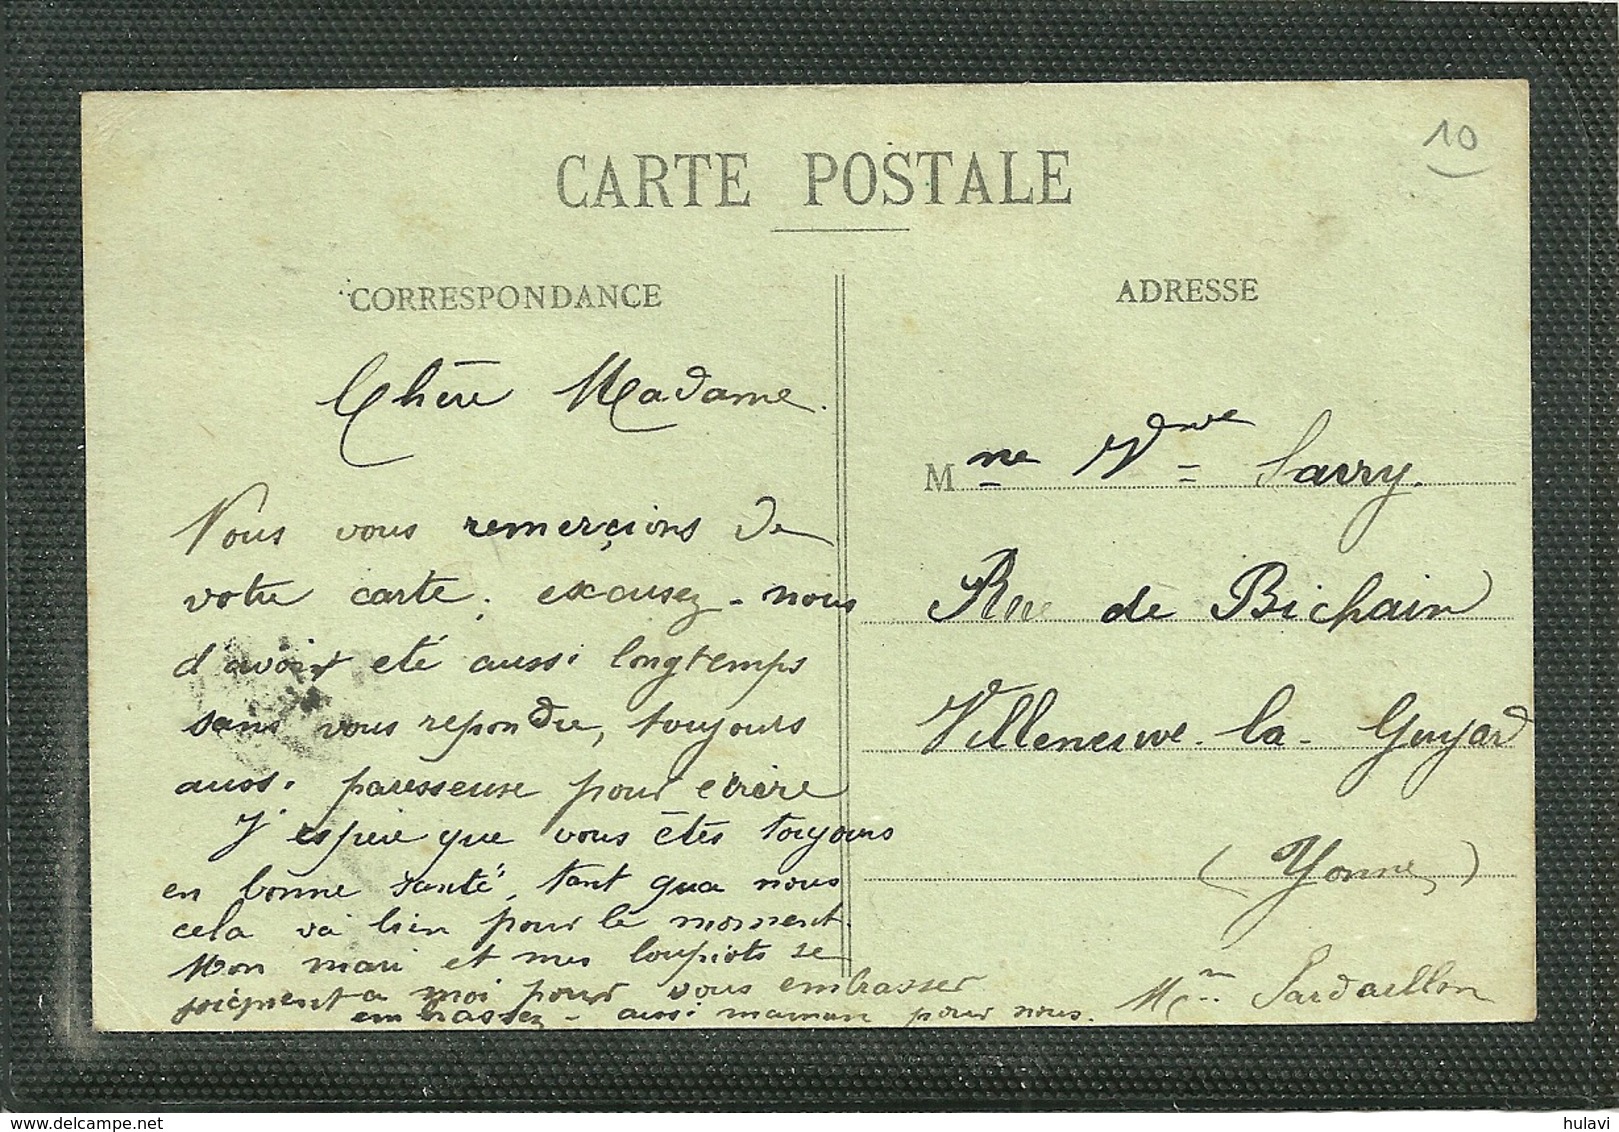 10
CARTE POSTALE
CORRESPONDANCE
Chère Madame.
Nous vous remerçions de
votre carte. excusez-nous
d'avoir eté aussi longtemps
sans vous repondre, toujours
aussi paresseuse pour ecrire
J'espere que vous êtes toujours
en bonne santé, tant qua nous
cela va bien pour le moment.
Mon mari et mes loupiots se
joignent a moi pour vous embrasser
embrassez-aussi maman pour nous.
ADRESSE
Mme Vve Savry.
Rue de Bichain
Villeneuve-la-Guyard
(Yonne)
Mme Sardaillon
delcampe.net
hulavi